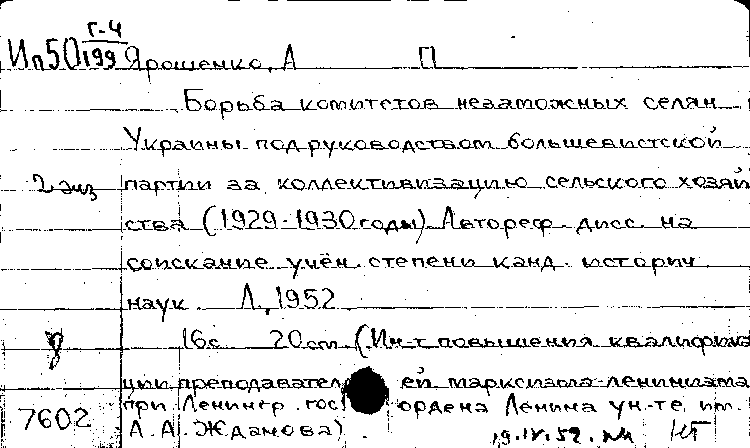 Г-4
Ип50 199 Ярошенко, А П
Борьба комитетов незаможных селян
Украины под руководством большевистской
2 экз партии за коллективизацию сельского хозяй
ства (1929-1930 годы). Автореф. дисс. на
соискание учён. степени канд. историч.
наук. Л., 1952.
16с 20 см (Ин-т повышения квалифика
ции преподавателей марксизма-ленинизма
при Ленингр. гос. ордена Ленина ун-те им.
7602 А.А. Жданова).
19.IV.52.